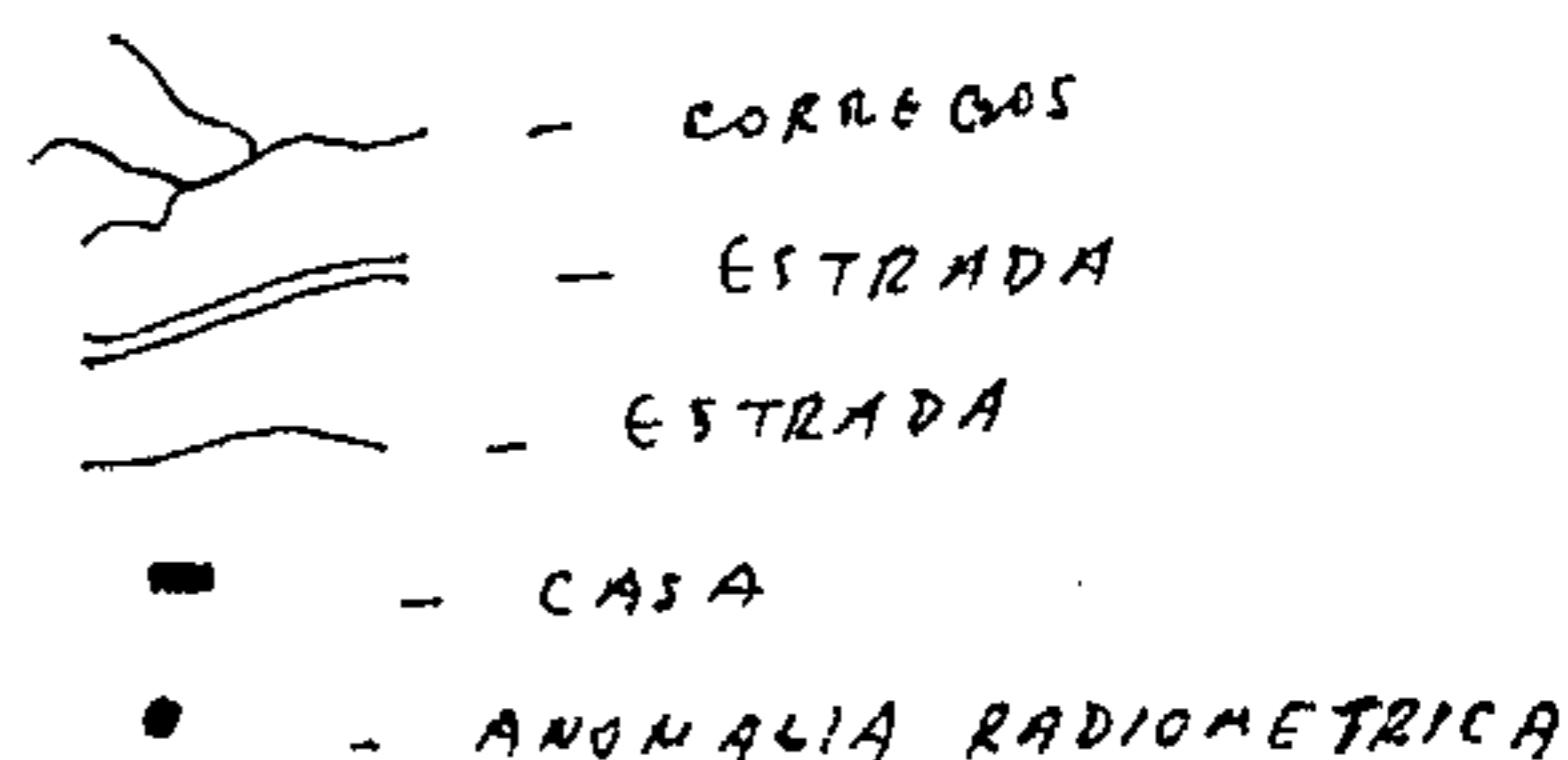 - CORREGOS
- ESTRADA
- ESTRADA
- CASA
- ANOMALIA RADIOMETRICA